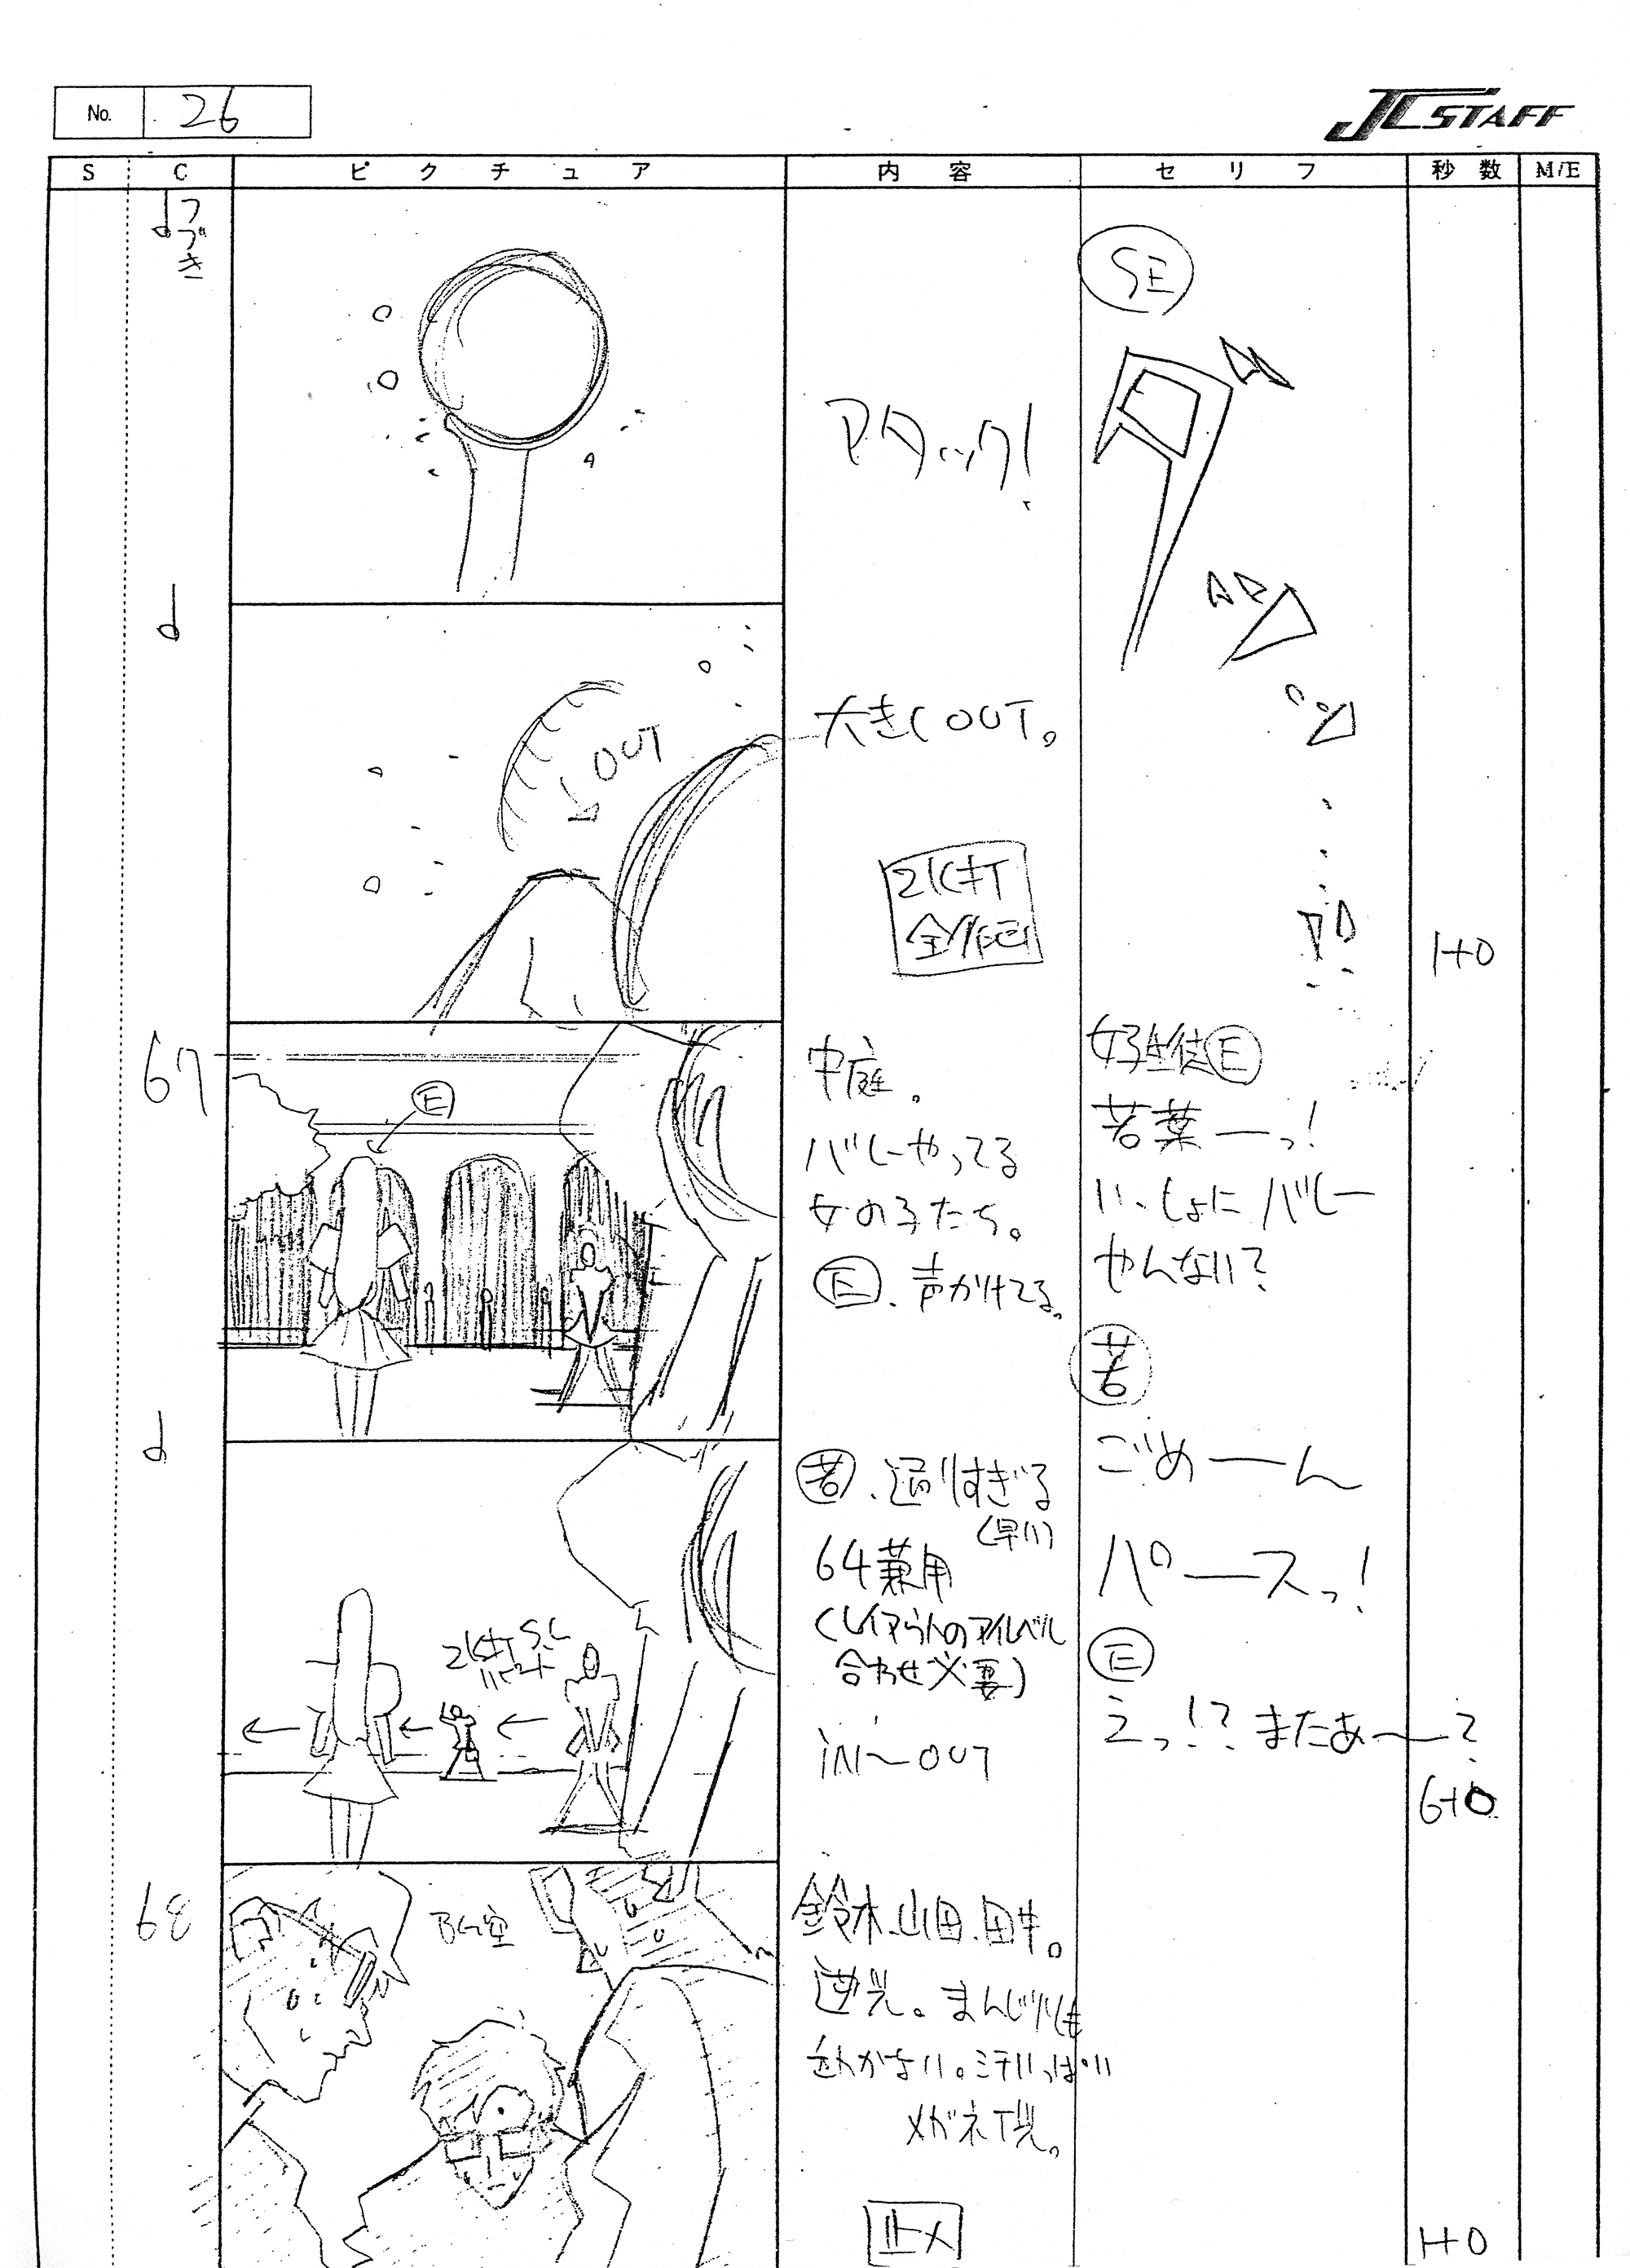 No. 26
JC STAFF
S C ピクチュア 内容 セリフ 秒数 M/E
つづき
SE
アタック!
大きくOUT。
OUT
2Kキ T
全作画
1+0
67
E
中庭。
バレーやってる
女の子たち。
E、声かけてる。
女子生徒E
若葉ーっ!
いっしょにバレー
やんない?
若
ごめーん
パースっ!
E
えっ!? またあ〜?
若、通りすぎる
(早い)
64兼用
(レイアウトのアイレベル
合わせ必要)
iN〜OUT
6+0
68
BG空
鈴木、山田、田中。
逆光。まんじりとも
動かない。汗いっぱい
メガネT光。
止メ
1+0